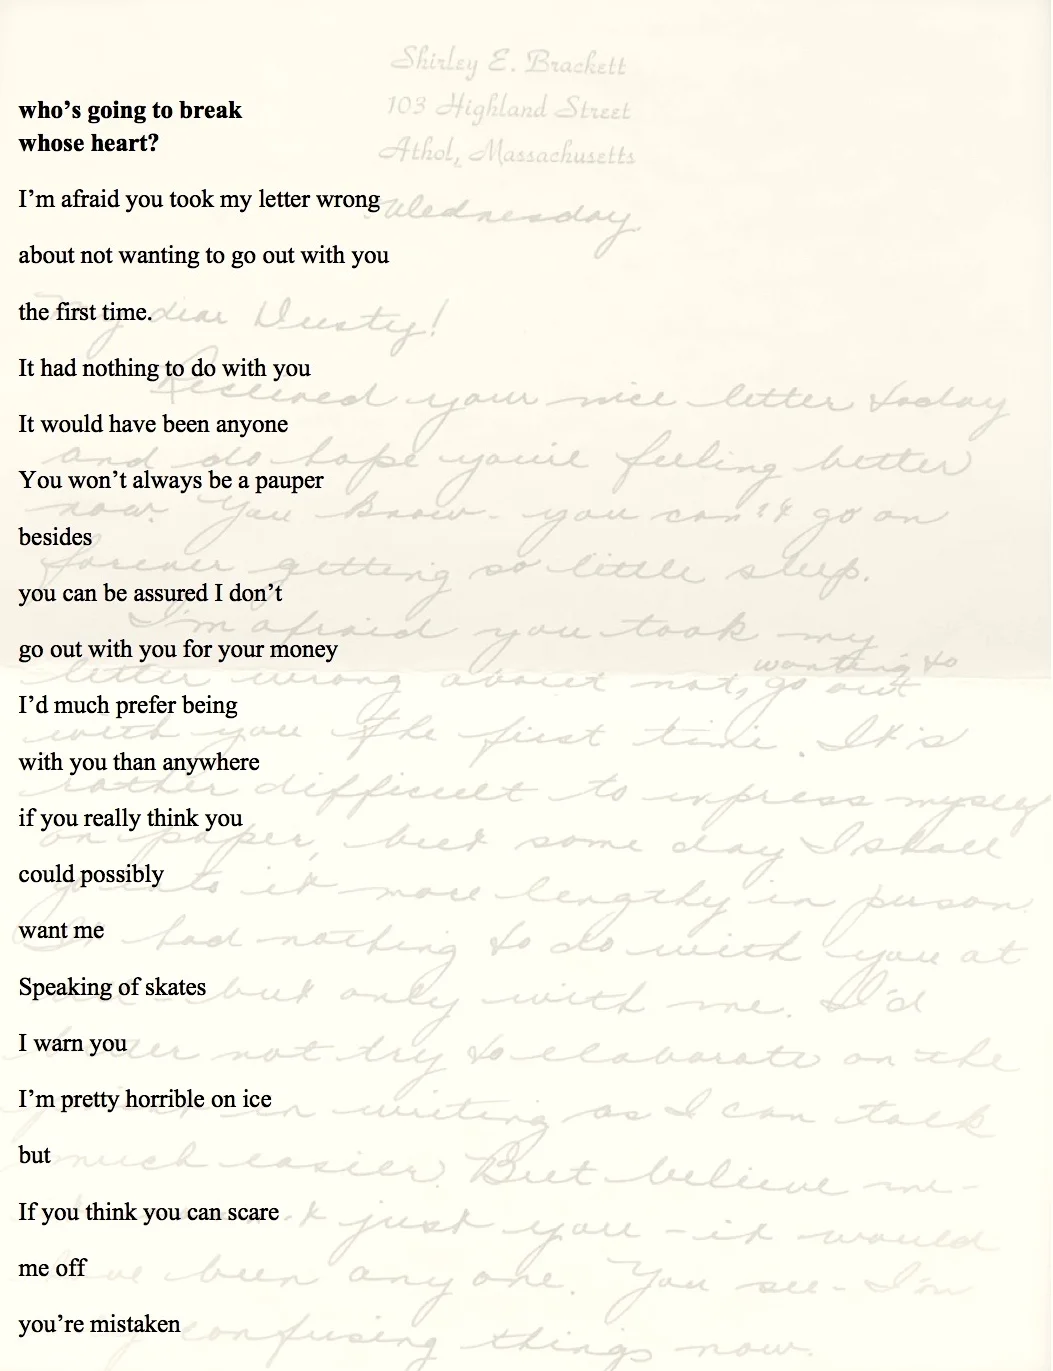 Shirley E. Brackett
103 Highland Street
Athol, Massachusetts
who’s going to break
whose heart?
I’m afraid you took my letter wrong
Wednesday
about not wanting to go out with you
the first time.
My dear Dusty!
It had nothing to do with you
Received your nice letter today
It would have been anyone
and do hope you're feeling better
You won’t always be a pauper
now. You know - you can't go on
besides
forever getting so little sleep.
you can be assured I don’t
I'm afraid you took my
go out with you for your money
letter wrong about not, wanting to go out
I’d much prefer being
with you the first time. It is
with you than anywhere
rather difficult to express myself
if you really think you
on paper, but some day I shall
could possibly
go into it more lengthy in person.
want me
It had nothing to do with you at
Speaking of skates
all - but only with me. I'd
I warn you
better not try to elaborate on the
I’m pretty horrible on ice
point in writing as I can talk
but
much easier. But believe me -
If you think you can scare
just you - it would
me off
have been anyone. You see - I'm
you’re mistaken
confusing things now.